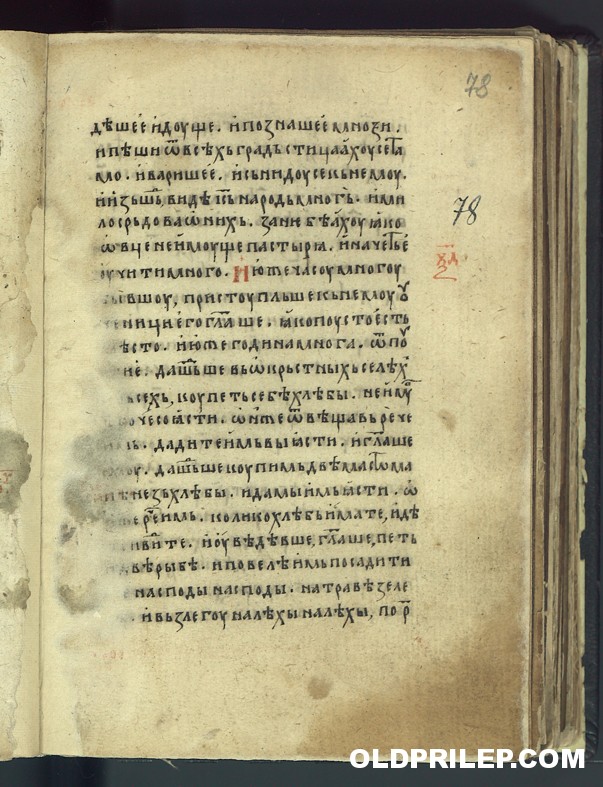 78
дѣшее идоуще. и познашее мнози.
и пѣши ѿ всѣхь градь стицаахоусе тамо
мо. и варише е. и сьнидоусе кь немоу.
и изьшь видѣ їсь народь многь. и ми
лосрьдова ѡ нихь. зане бѣахоу ꙗко
ѡвце не имоуще пастырꙗ. и начеть е
78
оучити много. И юже часоу многоу
бывшоу, пристоупльше кь немоу оу
ченици его глаше. ꙗко поусто есть
мѣсто. и юже година многа. ѿпоу
дашьше вь ѡкрьстныхь селѣхь
вьсехь, коупеть себѣ хлѣбы. не имоуть
чесо ꙗсти. ѡн же ѿвѣщавь рече
имь. дадите имь вы ꙗсти. и глаше
емоу. да шьше коупимь двѣма стома
пѣнезь хлѣбы. и дамы имь ꙗсти. ѡ
рече имь. колико хлѣбь имате, идѣ
видите. и оувѣдѣвше, глаше, петь
двѣ рыбѣ. и повелѣ имь посадити
на споды на споды. на травѣ зеле
и вьзлегоу на лѣхы на лѣхы, по р
OLDPRILEP.COM